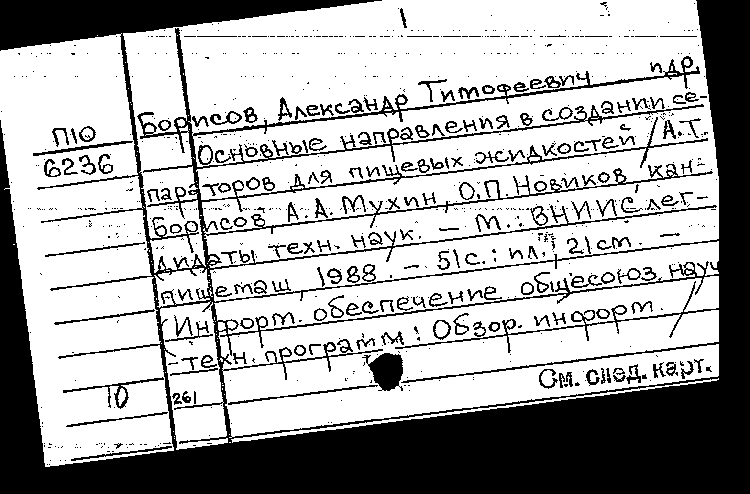 П10
6236
Борисов, Александр Тимофеевич и др.
Основные направления в создании се-
параторов для пищевых жидкостей / А.Т.
Борисов, А.А. Мухин, О.П. Новиков, кан-
дидаты техн. наук. – М.: ВНИИСлег-
пищемаш, 1988. – 51с.: ил.; 21см. –
(Информ. обеспечение общесоюз. науч
-техн. программ: Обзор. информ. /
10 261
См. след. карт.